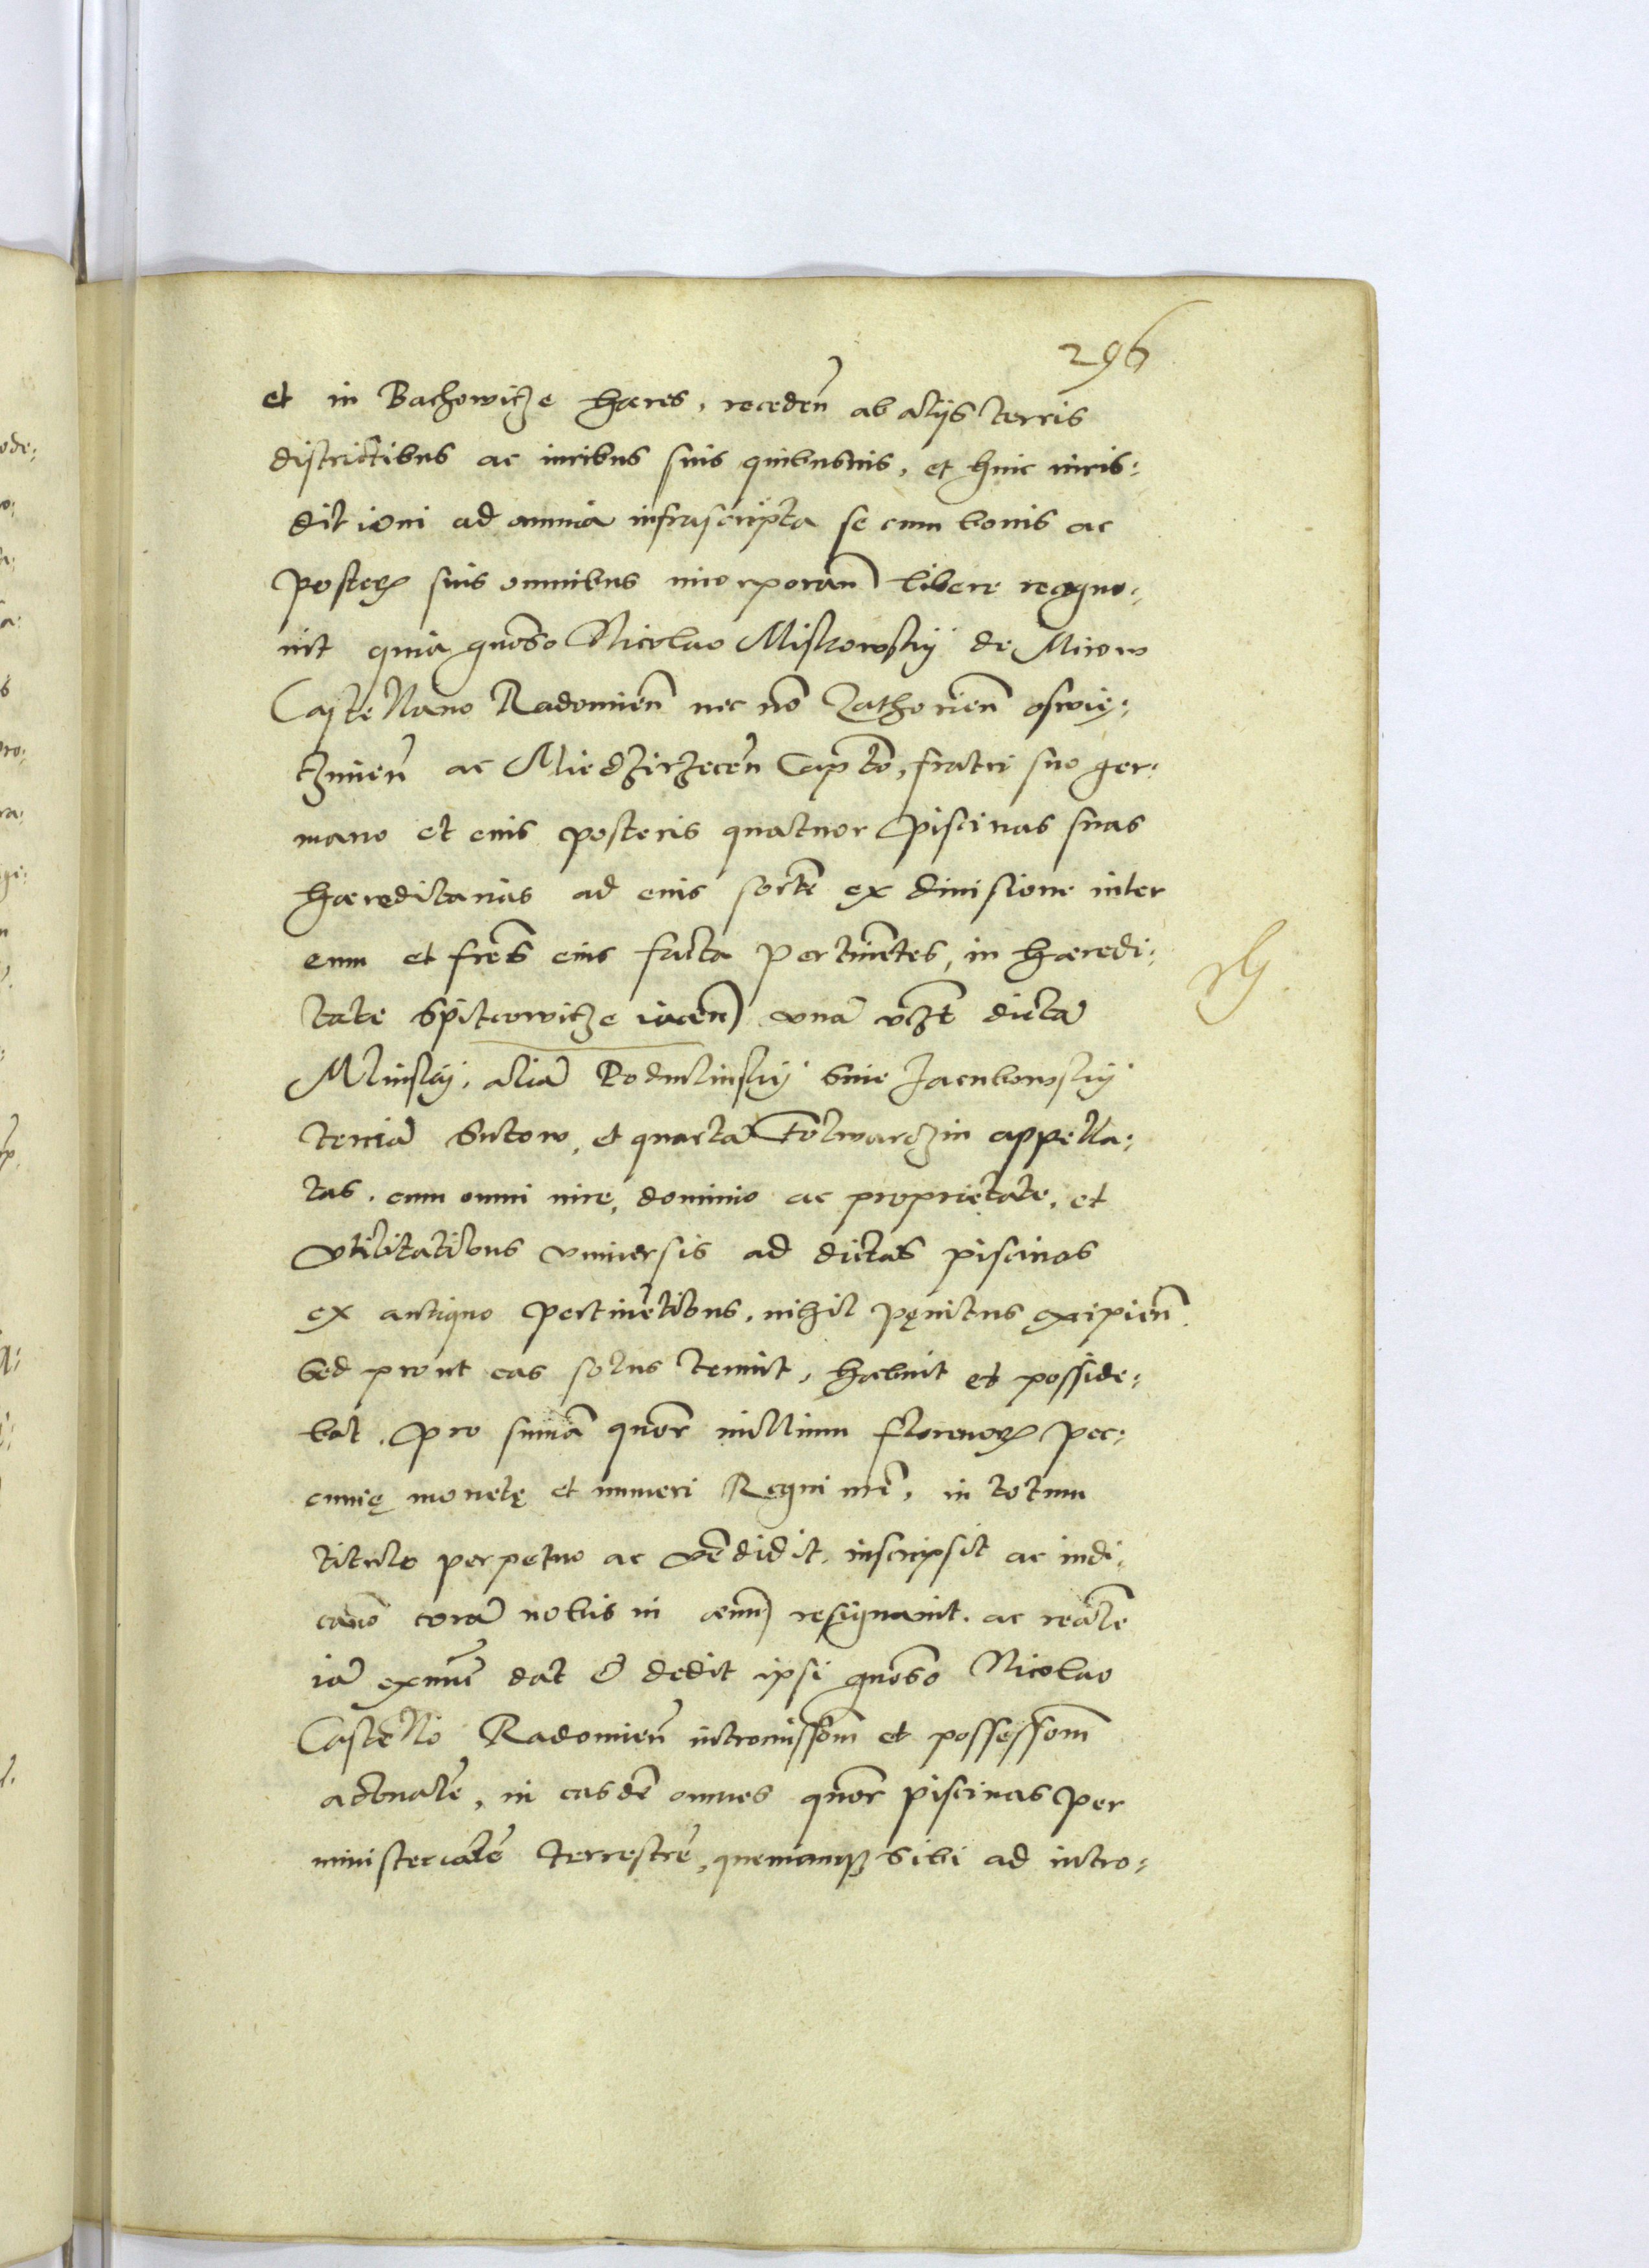 296
et in Bachowitze hæres, recedeñ ab alijs terris
districtibus ac iuribus suis quibusuis, et huic iuris:
dictioni ad omnia infrascripta se cum bonis ac
posteris suis omnibus incorporań libere recogno:
uit quia gnoso Nicolao Miskowskÿ de Mirow
Castellano Radomień nec nō Zathorień oswię:
tzimeń ac Miedzirzeceń Captō, fratri suo ger:
mano et eius posteris quatuor piscinas suas
hæreditarias ad eius sortē ex diuisione inter
eum et frēs eius facta pertinētes, in hæredi:
tate Spitcowitze iaceń vnā vzt dictā
Mlinskÿ, aliā Podmlinskÿ siue Jacubowskÿ
terciā Sutow, et quartā Folwarczin appella:
tas. cum omni iure, dominio ac proprietate, et
vtilitatibus vniuersis ad dictas piscinas
ex antiquo pertinētibus, nihil pęnitus excipień
sed prout eas solus tenuit, habuit et posside:
bat. pro sumā quor millium florenor pec:
cunię monetę et numeri Regni in rē, in totum
titulo perpetuo ac vēdidit, inscripsit ac iudi:
cario corā nobis in æuū resignauit. ac realē
iā exnūc dat & dedit ipsi gnoso Nicolao
Castello Radomień intromissiom et possessiom
actualē, in easdē omnes quor piscinas per
ministerialē terrestrē, quemcunq sibi ad intro: